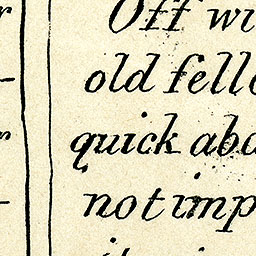 Off wi
old fell
quick abo
not imp